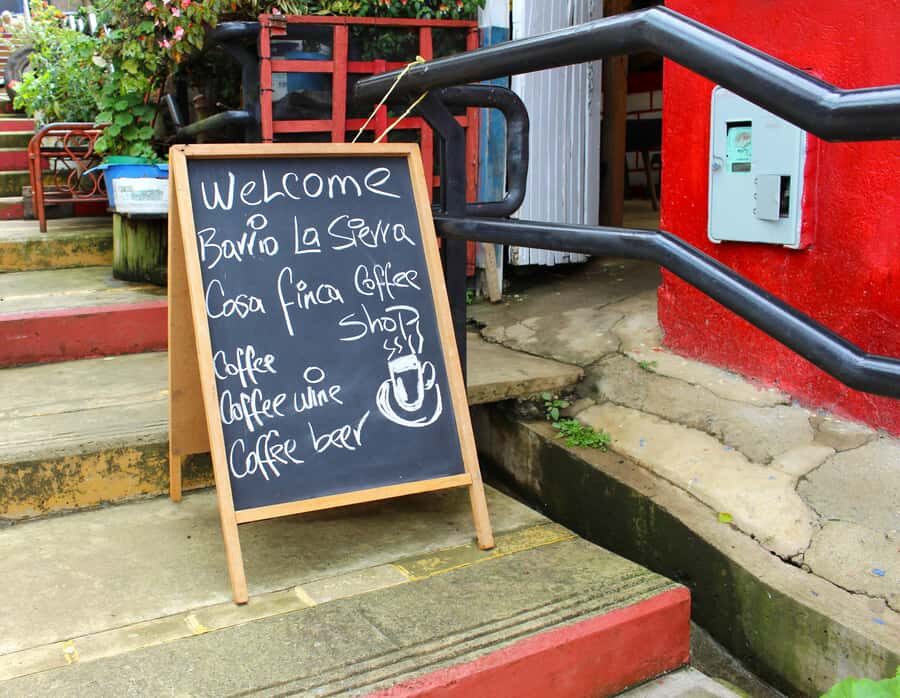 Welcome
Barrio La Sierra
Casa finca Coffee
shop
Coffee
Coffee wine
Coffee beer